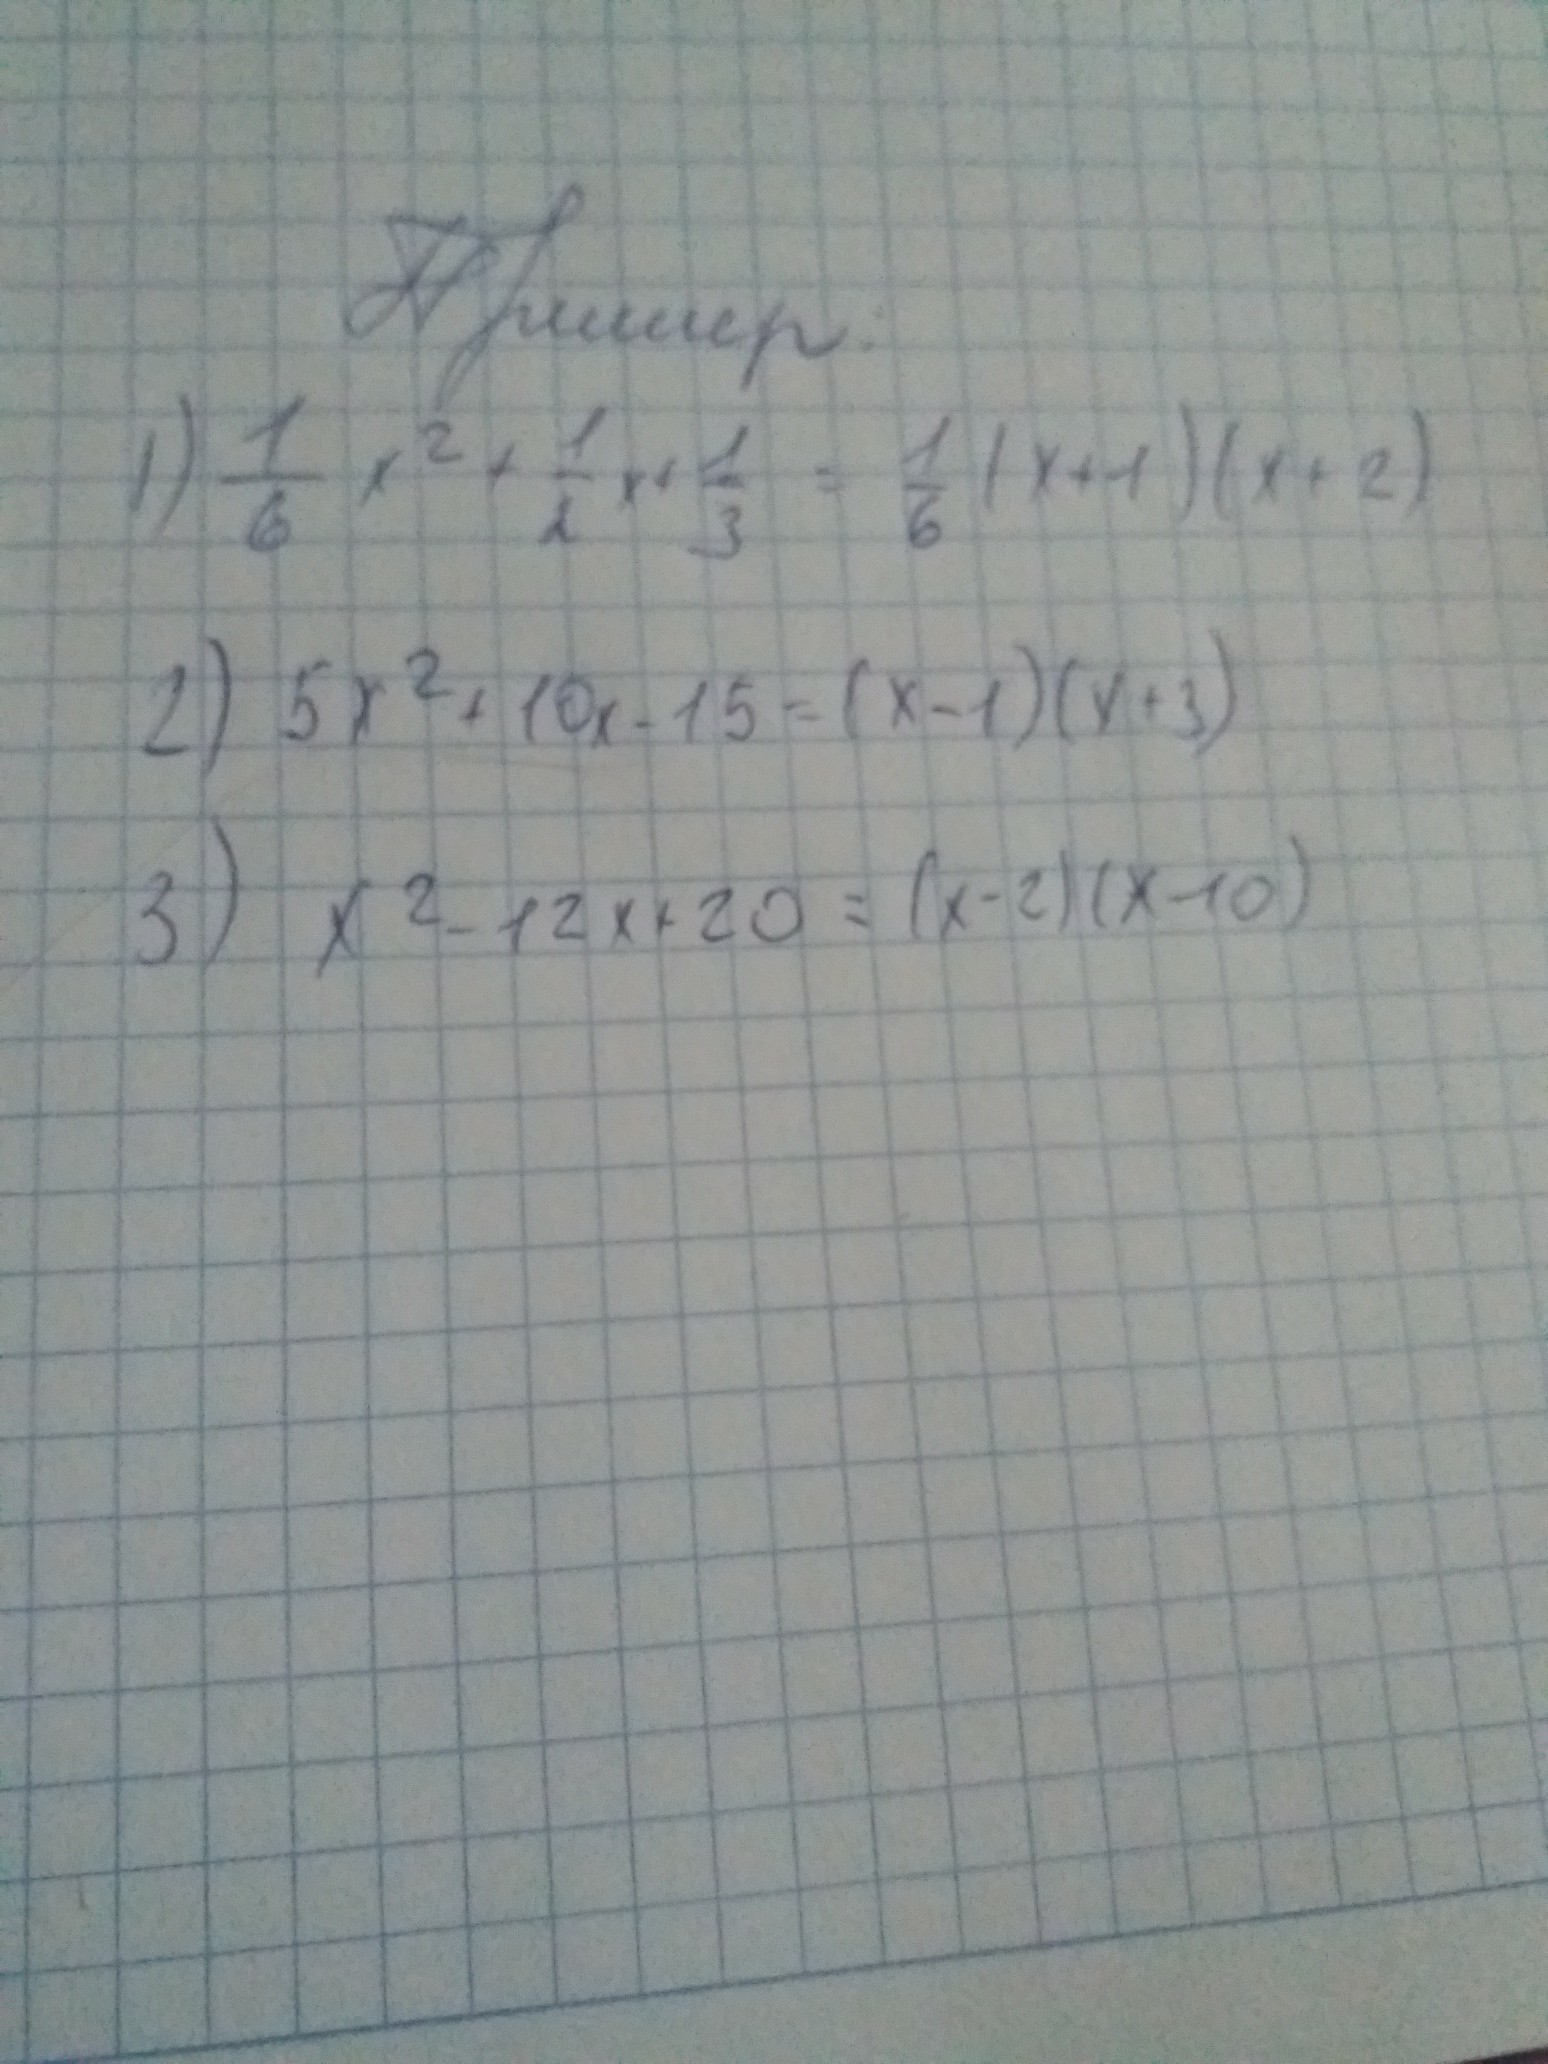 Пример:
1) 1/6 x² + 1/2 x + 1/3 = 1/6 (x+1)(x+2)
2) 5x² + 10x - 15 = (x-1)(x+3)
3) x² - 12x + 20 = (x-2)(x-10)